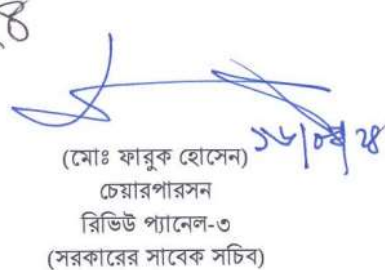 (মোঃ ফারুক হোসেন)
চেয়ারপারসন
রিভিউ প্যানেল-৩
(সরকারের সাবেক সচিব)